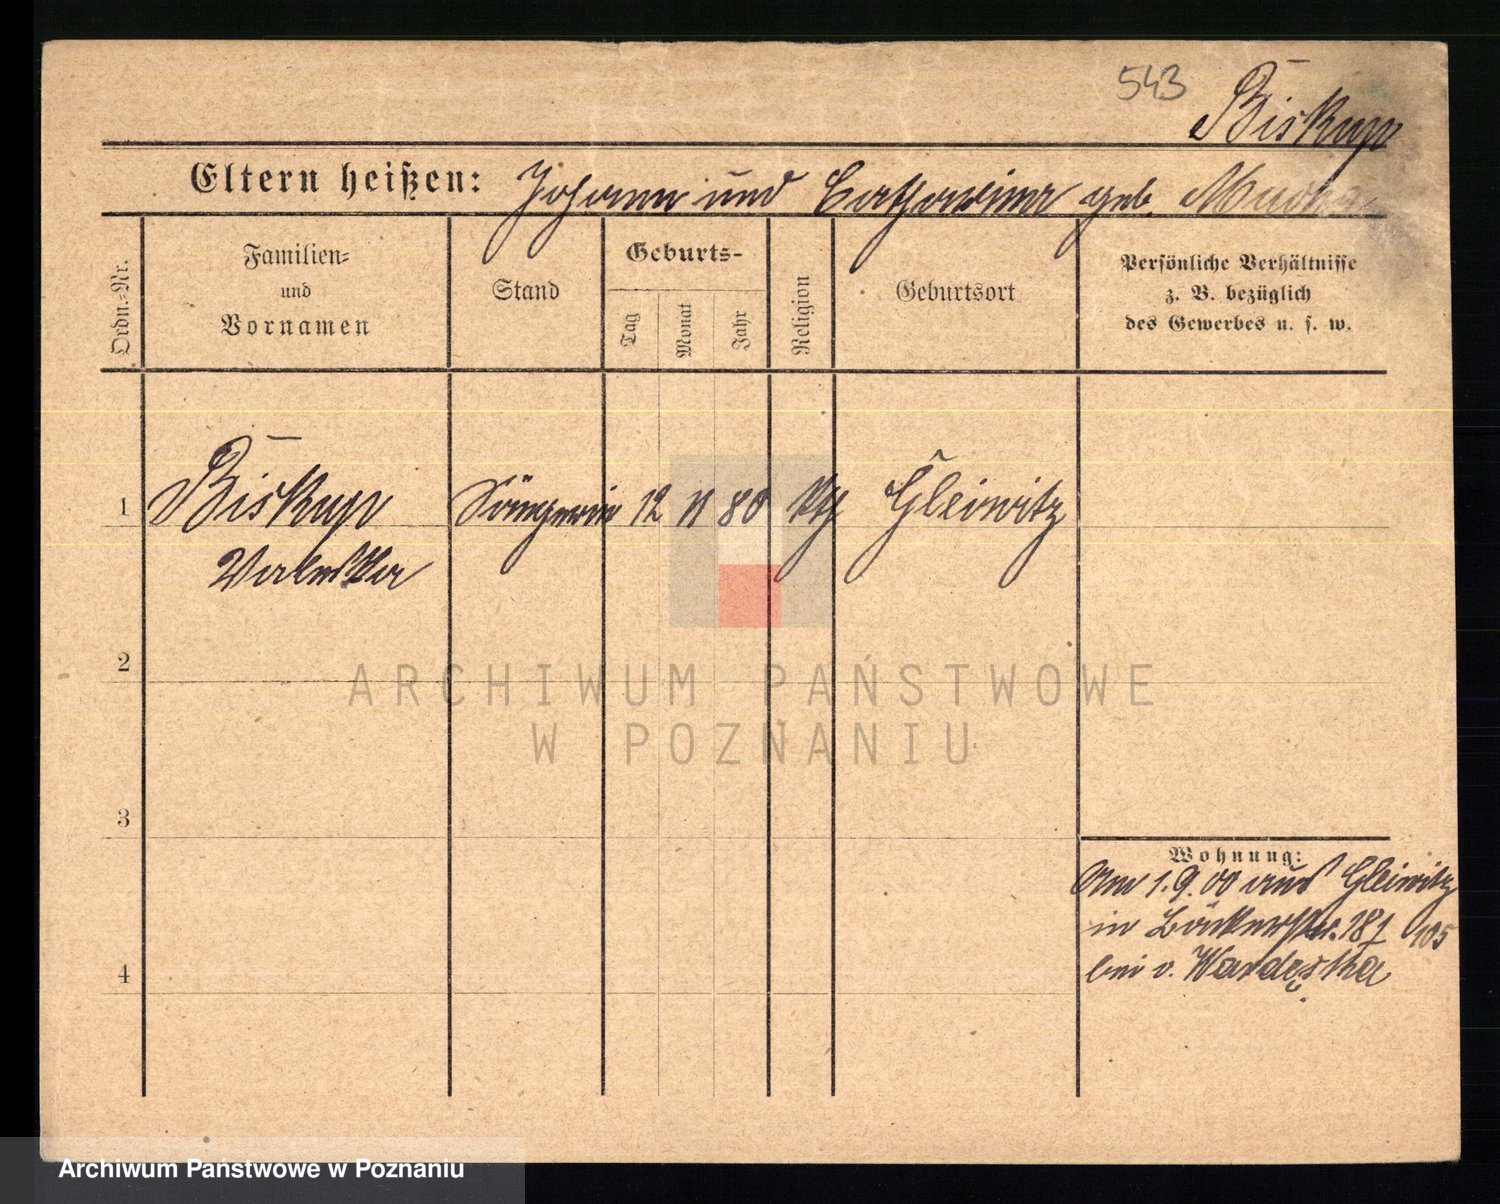 543
Biskup
Eltern heißen: Johann und Catharina geb. Mucha
Ordn.=Nr.
Familien=
und
Vornamen
Stand
Geburts-
Tag
Monat
Jahr
Religion
Geburtsort
Persönliche Verhältnisse
z. B. bezüglich
des Gewerbes u. s. w.
1 Biskup Sängerin 12 11 80 kth Gleiwitz
Valeska
2
3
4
Wohnung:
Am 1.9.00 aus Gleiwitz
in Bäckerstr. 18
bei v.
ARCHIWUM PAŃSTWOWE
W POZNANIU
Archiwum Państwowe w Poznaniu